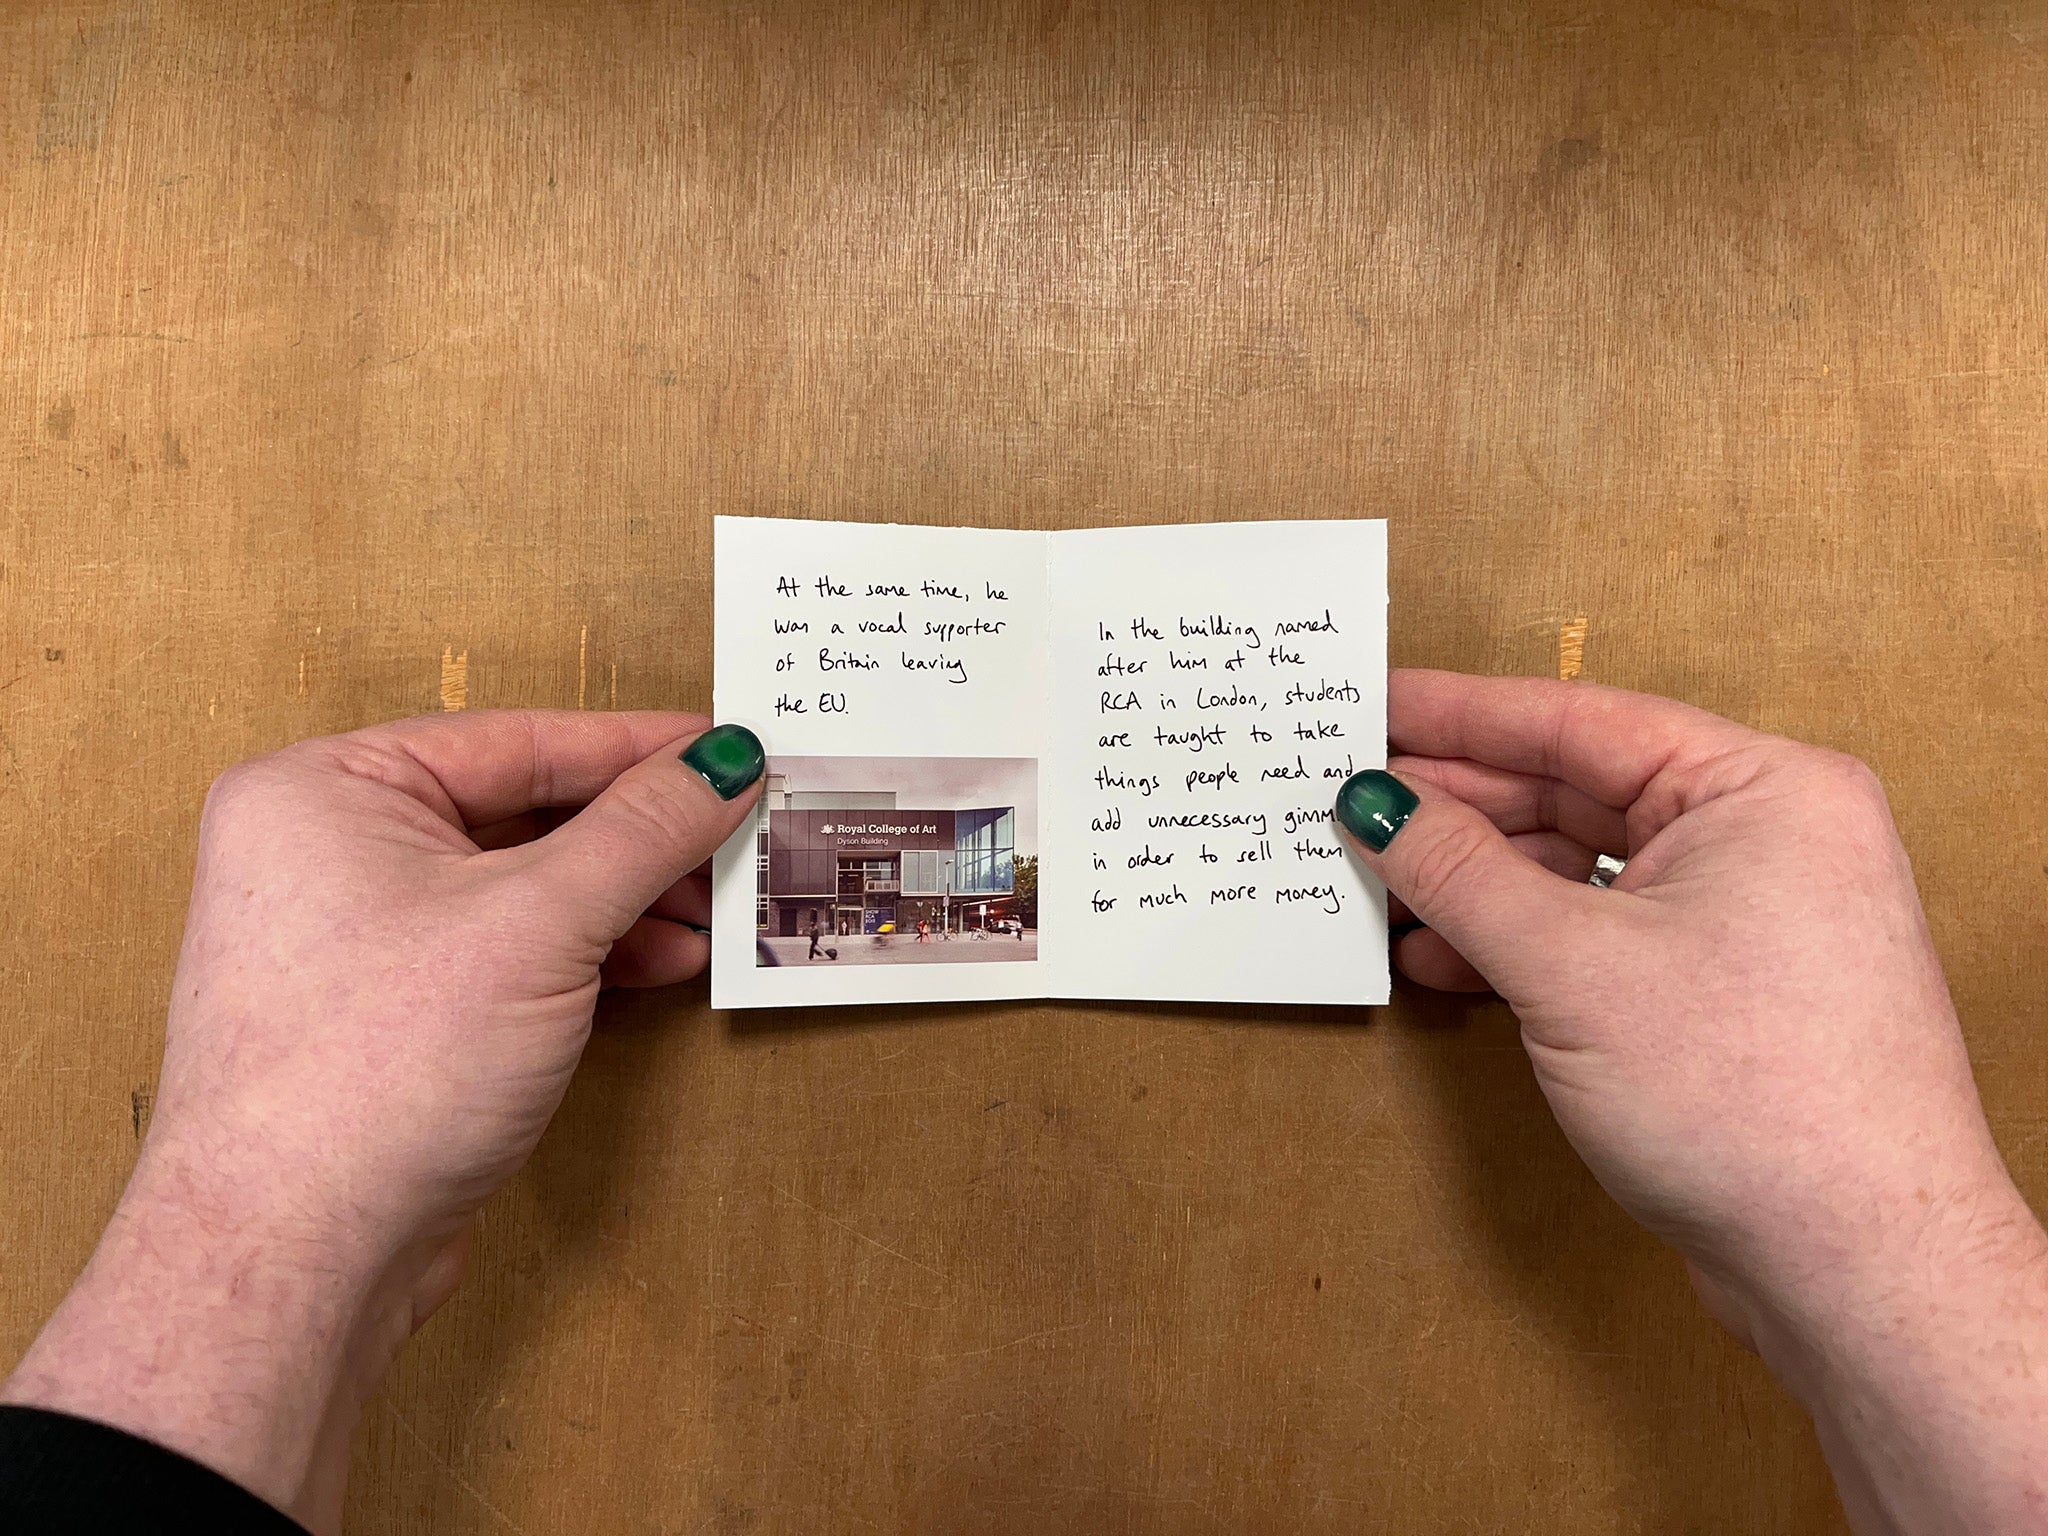 At the same time, he
was a vocal supporter
of Britain leaving
the EU.
Royal College of Art
Dyson Building
In the building named
after him at the
RCA in London, students
are taught to take
things people need and
add unnecessary
in order to sell them
for much more money.